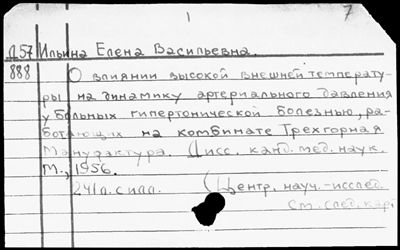 1 7
Д57 Ильина Елена Васильевна.
888 О влиянии высокой внешней температу-
ры на динамику артериального давления
у больных гипертонической болезнью, ра-
ботающих на комбинате Трехгорная
Мануфактура. Дисс. канд. мед. наук.
М., 1956.
241л. с илл. (Центр. науч.-исслед.
См. след. карт